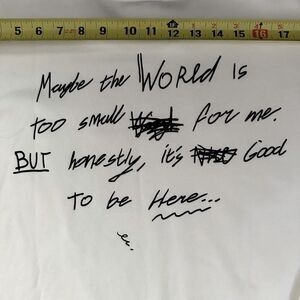 5 6 7 8 9 10 11 12 13 14 15 16 17
Maybe the World is
too small for me.
BUT honestly, it's Good
to be Here...